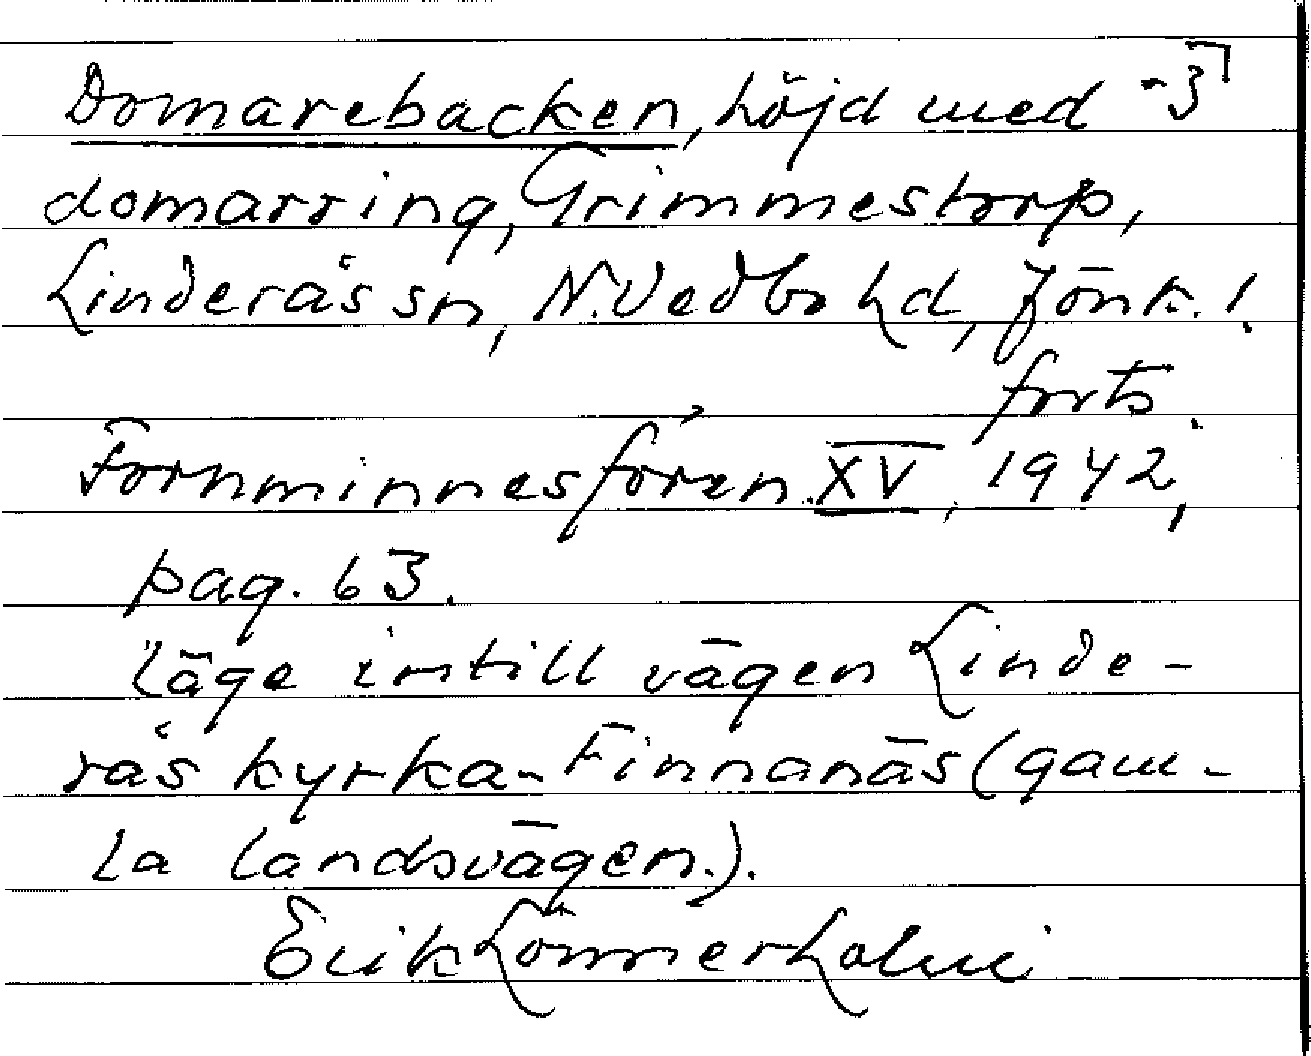 Domarebacken, höjd med -3
domarring, Grimmestorp,
Linderås sn, N. Vedbo hd, Jönk. l.
forts.
Fornminnesfören. XV, 1942,
pag. 63.
Läge intill vägen Linde-
rås kyrka-Finnanäs (gam-
la landsvägen.).
Erik Lönnerholm